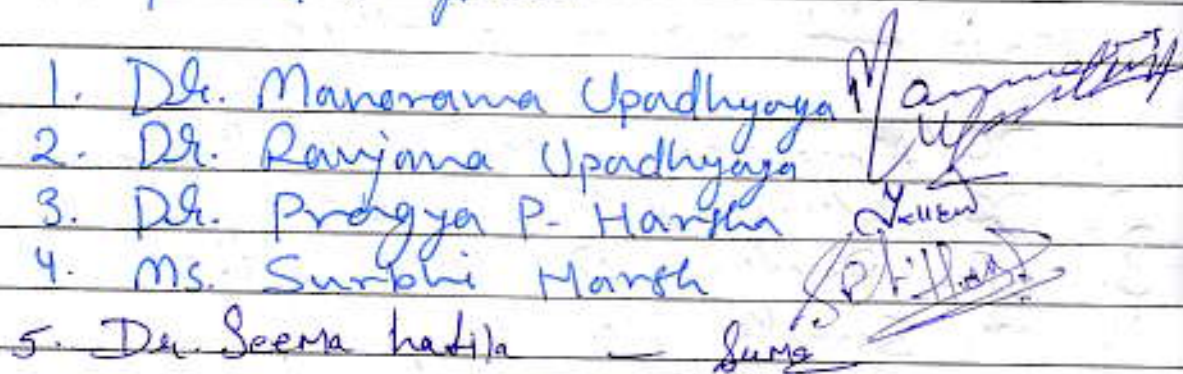 1. Dr. Manorama Upadhyaya
2. Dr. Ranjana Upadhyaya
3. Dr. Pragya P. Harsha
4. Ms. Surbhi Harsh
5. Dr. Seema hatila — Suma